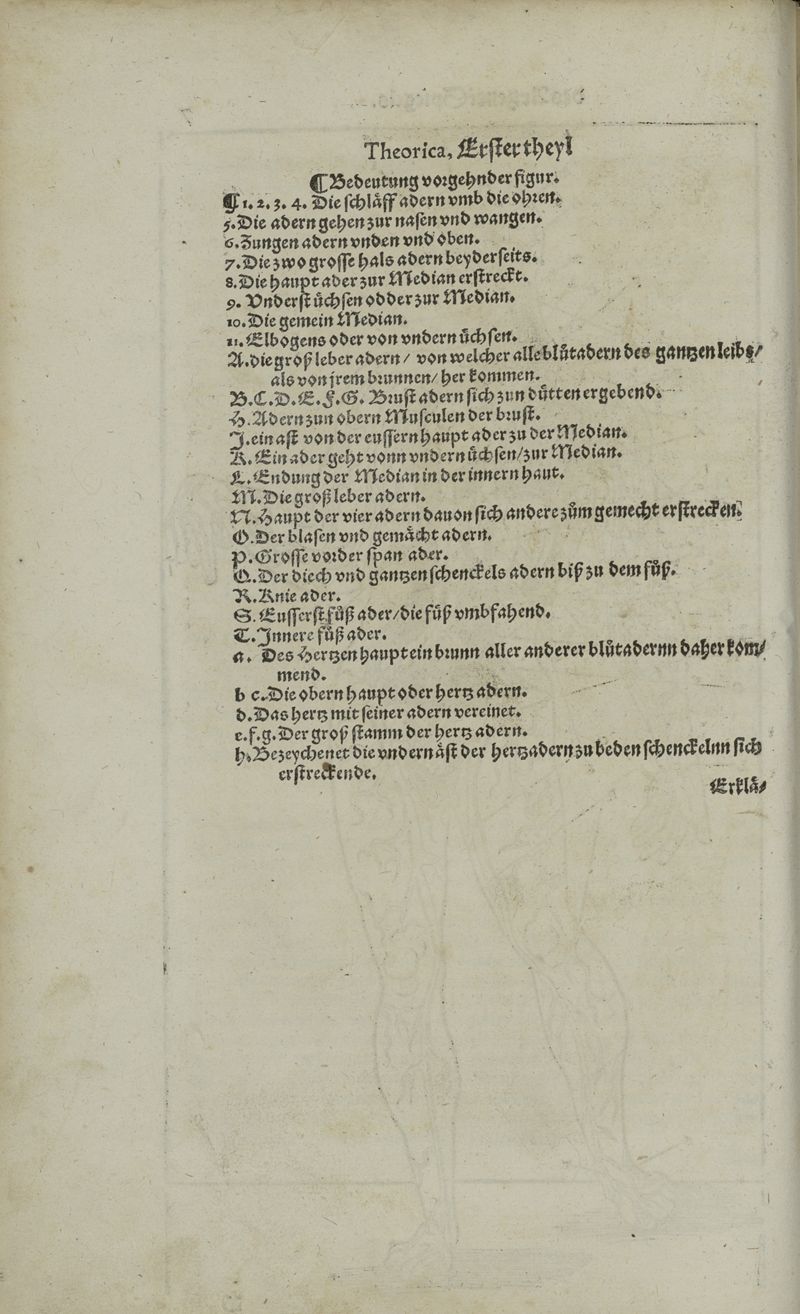 Theorica, Erster theyl
¶ Bedeutung vorgehnder figur.
¶ 1. 2. 3. 4. Die schläff adern vmb die ohren.
5. Die adern gehen zur nasen vnd wangen.
6. Zungen adern vnden vnd oben.
7. Die zwo grosse hals adern beyderseits.
8. Die haupt ader zur Median erstreckt.
9. Vnderst üchsen odder zur Median.
10. Die gemein Median.
11. Elbogens oder von vndern üchsen.
A. die groß leber adern / von welcher alle blůtadern des gantzen leibs/
als von jrem brunnen / her kommen.
B. C. D. E. F. G. Brust adern sich zun dütten ergebend.
H. Adern zun obern Musculen der brust.
J. ein ast von der eussern haupt ader zu der Median.
K. Ein ader geht vonn vndern üchsen / zur Median.
L. Endung der Median in der innern haut.
M. Die groß leber adern.
N. Haupt der vier adern dauon sich andere zům gemecht erstrecken.
O. Der blasen vnd gemächt adern.
P. Grosse vorder span ader.
Q. Der diech vnd gantzen schenckels adern biß zu dem fůß.
R. Knie ader.
S. Eusserst fůß ader / die fůß vmbfahend.
T. Innere fůß ader.
a. Des Hertzen haupt ein brunn aller anderer blůtadernn daher kom/
mend.
b c. Die obern haupt oder hertz adern.
d. Das hertz mit seiner adern vereinet.
e. f. g. Der groß stamm der hertz adern.
h. Bezeychenet die vndern äst der hertzadern zu beden schenckelnn sich
erstreckende.
Erklä/